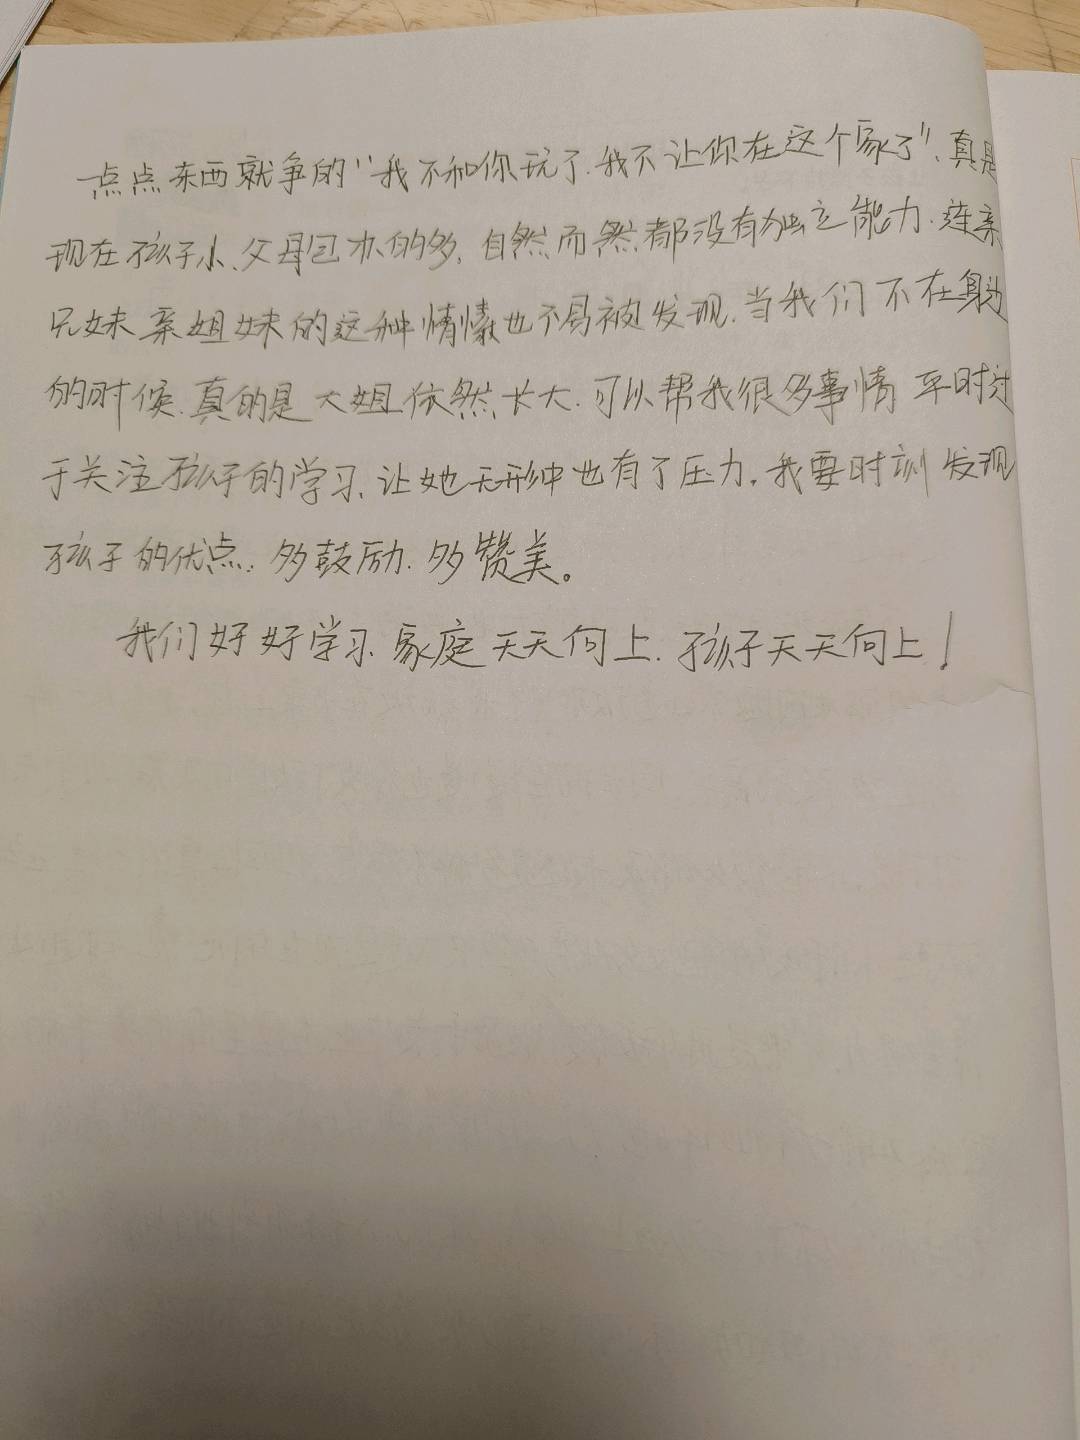 点点东西就争的"我不和你玩了.我不让你在这个家了"、真是
现在孩子小、父母包办的多,自然而然都没有独立能力.连亲
兄妹亲姐妹的这种情愫也不易被发现.当我们不在身边
的时候.真的是大姐依然长大.可以帮我很多事情 平时过
于关注孩子的学习、让她无形中也有了压力。我要时刻发现
孩子的优点.多鼓励.多赞美。
我们好好学习.家庭天天向上.孩子天天向上!